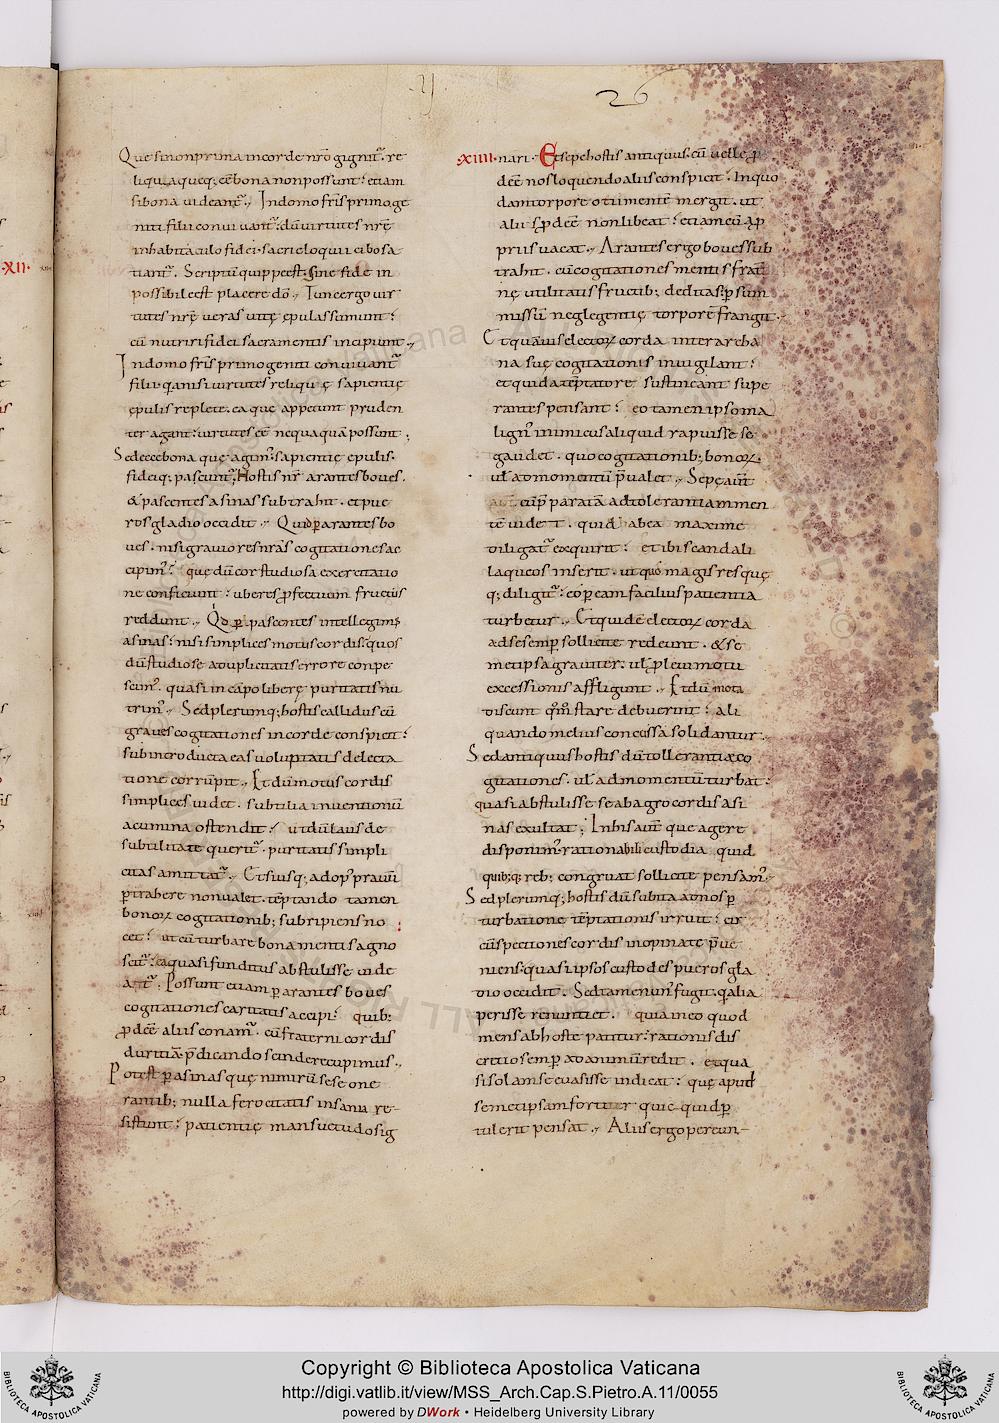 26
Que si non prima in corde nr̄o gignit᷑. re
liqua queq; eē bona non poss̄unt: etiam
si bona uideant᷑., In domo fr̄is primoge
niti filii conuiuant᷑: dū uirtutes nr̄ę
inhabitaculo fidei. sacri eloquii cibo sa
tiant᷑. Scriptū quippe est. Sine fide in
possibile est placere dō., Tunc ergo uir
tutes nr̄ę ueras uitę ępulas sumunt:
cū nutriri fidei sacramentis incipiunt.,
In domo fr̄is primogeniti conuiuant᷑
filii. q̄a nisi uirtutes reliquę sapientię
ępulis replete. ea que appetunt pruden
ter agant: uirtutes eē nequaquā possunt;
Sed ecce bona quę agim᷒. sapientię epulis.
fideiq; pascunt᷑. Hostis nr̄ arantes boues.
& pascentes asinas subtrahit. et pue
ros gladio occidit., Quid ꝑ arantes bo
ues. nisi grauiores nr̄as cogitationes ac
cipim᷒: quę dū cor studiosa exercitatio
ne conficiunt: uberes ꝓfectuum fructus
reddunt., Qd̄ ꝑ pascentes intellegim᷒
asinas: nisi simplices motus cordis. quos
dū studiose a duplicitatis errore conpe
scim᷒. quasi in cāpo liberę puritatis nu
trim᷒., Sed plerumq; hostis callidus cū
graues cogitationes in corde conspicit:
subintroducta eas uoluptatis delecta
tione corrūpit., Et dū motus cordis
simplices uidet. subtilia inuentionū
acumina ostendit: ut dū laus de
subtilitate querit᷑. puritatis simpli
citas amittat᷑., Et si usq; ad op᷒ prauū
ꝑtrahere non ualet. tēptando tamen
bonoꝝ cogitationib; subripiens no
cet: ut cū turbare bona mentis agno
scit᷑: ea quasi funditus abstulisse uide
at᷑; Possunt etiam ꝑ arantes boues
cogitationes caritatis accipi: quib;
ꝓdeē aliis conam᷑. cū fraterni cordis
duritiā p̄dicando scindere cupimus.,
Potest ꝑ asinas quę nimirū sese one
rantib; nulla ferocitatis insania re-
sistunt: patientię mansuetudo sig
·XIIII· nari. Et sepe hostis antiquus. cū uelle ꝓ
deē nos loquendo aliis conspicit. In quo
dam torpore otii mentē mergit. ut
aliis ꝓdeē non libeat: etiam cū a ꝓ
priis uacat., Arantes ergo boues sub
trahit. cū cogitationes mentis frat̄
nę utilitatis fructib; deditas: ꝑ sum
missū neglegentię torporē frangit.
Et quāuis electoꝝ corda inter archa
na suę cogitationis inuigilant:
et quid a tēptatore sustineant supe
rantes pensant: eo tamen ipso ma
lign᷒ inimicus aliquid rapuisse se
gaudet. quo cogitationib; bonoꝝ.
ul̄ ad momentū p̄ualet., Sepę aut̄
cūp̄ paratā ad tolerantiam men
tē uidet. quid habea maxime
diligat᷑ exquirit: et ibi scandali
laqueos inserit. ut quo magis res quę
q; diligit᷑: eo ꝑ eam facilius patientia
turbetur., Et quidē electoꝝ corda
ad se semꝑ sollicite redeunt. & se
metipsa grauiter. ul̄ ꝓ leui motu
excessionis affligunt., Et dū mota
discunt qm̄ stare debuerint: ali
quando melius concussa solidantur.
Sed antiquus hostis dū tollerantiæ co
gitationes. ul̄ ad momentū turbat:
quasi abstulisse se ab agro cordis asi
nas exultat; In his aut̄ que agere
disponim᷒. rationabili custodia quid
quib; q; reb; congruat sollicite pensam᷒:
Sed plerumq; hostis dū subita ad nos ꝑ
turbatione tēptationis irruit: cir
cūspectiones cordis inopinate p̄ue
niens: quasi ipsos custodes pueros gla
dio occidit. Sed tamen un᷒ fugit. q̄ alia
perisse renuntiet. quia in eo quod
mens ab hoste patitur: rationis dis
cretio semꝑ ad animū redit. et qua
si solam se euasisse indicat: quę apud
semetipsam fortiter quic quid ꝑ
tulerit pensat., Aliis ergo pereun-
·XII·
Copyright © Biblioteca Apostolica Vaticana
http://digi.vatlib.it/view/MSS_Arch.Cap.S.Pietro.A.11/0055
powered by DWork • Heidelberg University Library
BIBLIOTECA APOSTOLICA VATICANA
BIBLIOTECA APOSTOLICA VATICANA